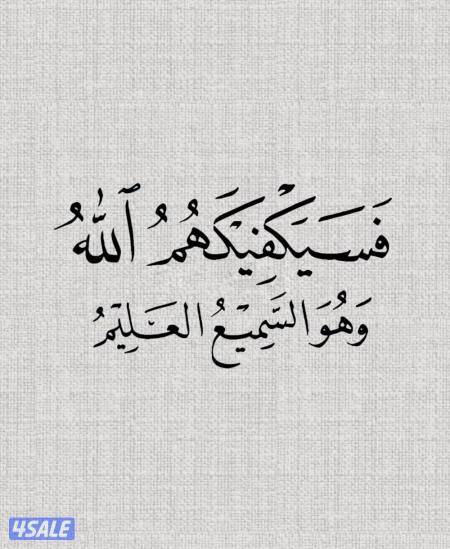 فَسَيَكْفِيكَهُمُ ٱللَّهُ
وَهُوَ السَّمِيْعُ العَلِيْمُ
4SALE